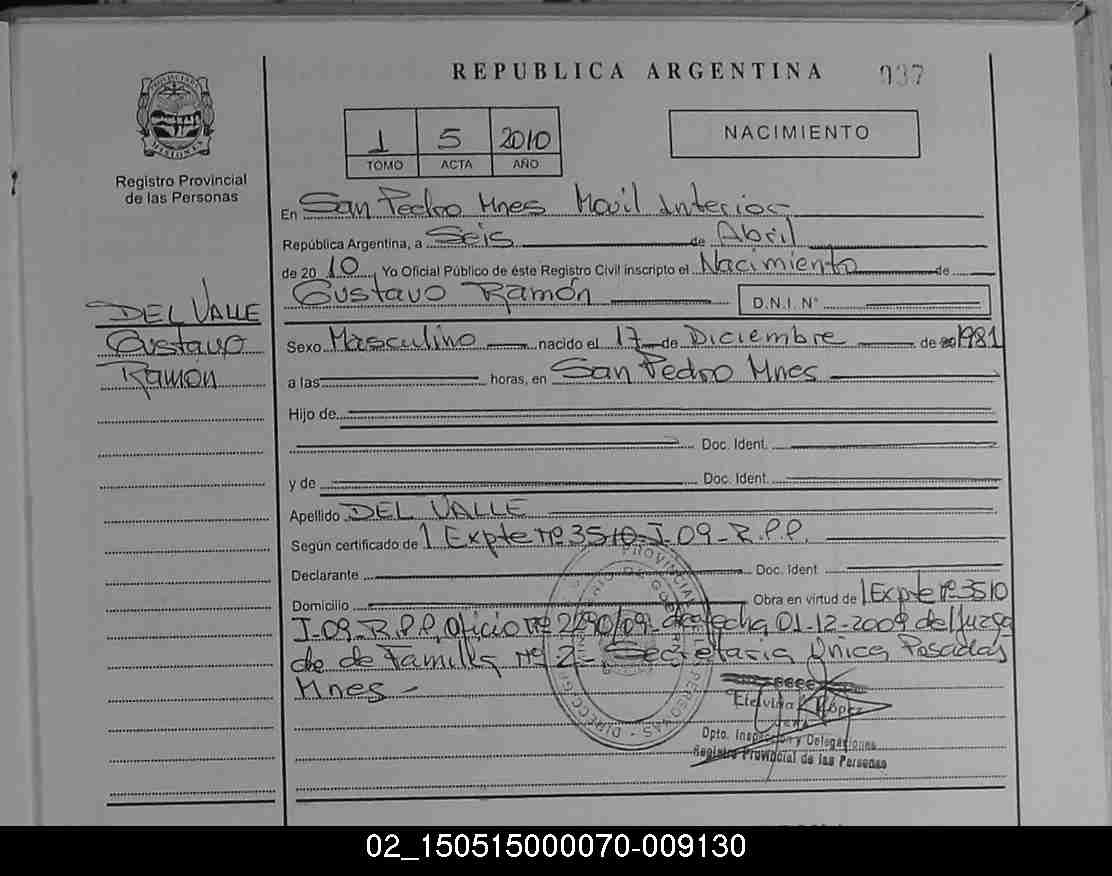 REPUBLICA ARGENTINA 037
PROVINCIA DE MISIONES
Registro Provincial
de las Personas
1 5 2010
TOMO ACTA AÑO
NACIMIENTO
En San Pedro Mnes Movil Interior
República Argentina, a Seis de Abril
de 2010, Yo Oficial Público de éste Registro Civil inscripto el Nacimiento de
Gustavo Ramón D.N.I. N°
DEL VALLE
Gustavo
Ramón
Sexo Masculino nacido el 17 de Diciembre de 1981
a las horas, en San Pedro Mnes
Hijo de
Doc. Ident.
y de Doc. Ident.
Apellido DEL VALLE
Según certificado de 1 Expte Nº 3510-J-09-R.P.P.
Declarante Doc. Ident
Domicilio Obra en virtud de 1 Expte Nº 3510
J-09-R.P.P. Oficio Nº 2290/09- de fecha 01-12-2009 del Juzga
do de Familia Nº 2- Secretaria Única Posadas
Mnes -
Etelvina López
Dpto. Inspección y Delegaciones
Registro Provincial de las Personas
02_150515000070-009130